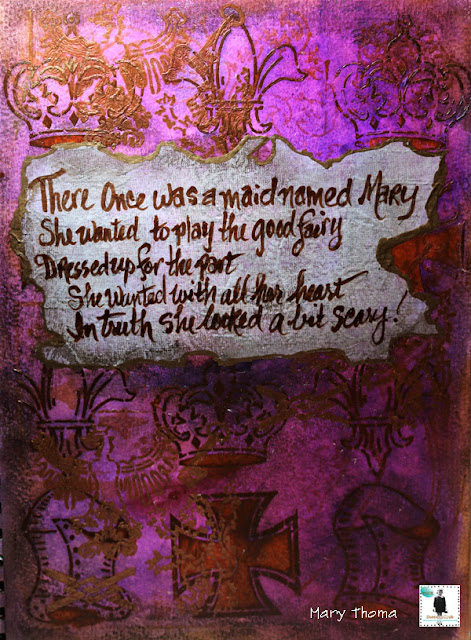 There Once was a maid named Mary
She wanted to play the good fairy
Dressed up for the part
She wanted with all her heart
In truth she looked a bit scary!
Mary Thoma